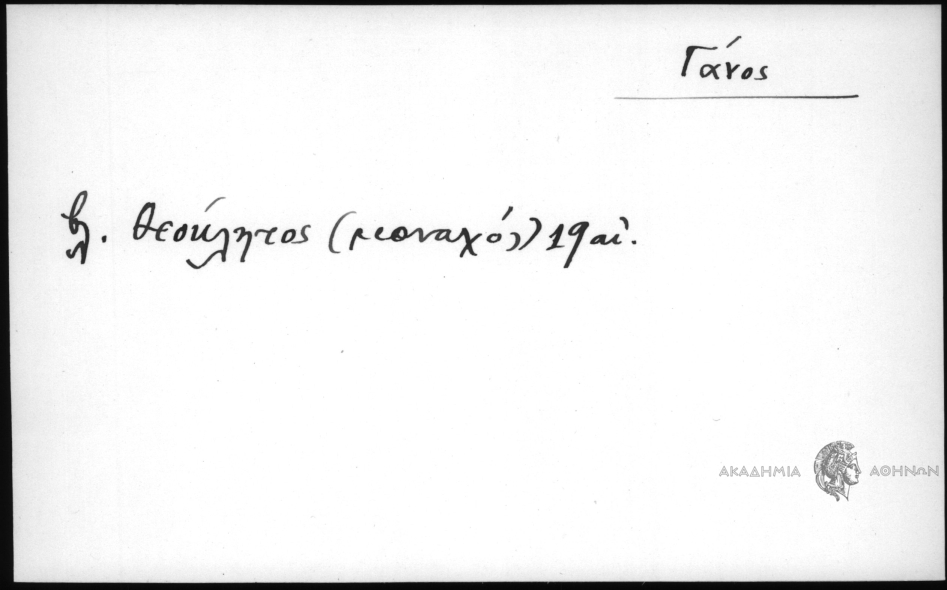 Γάνος
βλ. Θεόκλητος (μοναχός) 19 αἰ.
ΑΚΑΔΗΜΙΑ ΑΘΗΝΩΝ